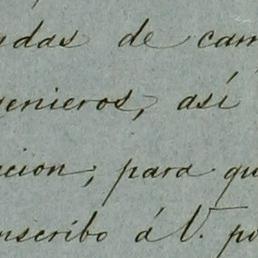 udas de cam
genieros, así
acion; para qu
nscribo á V. po